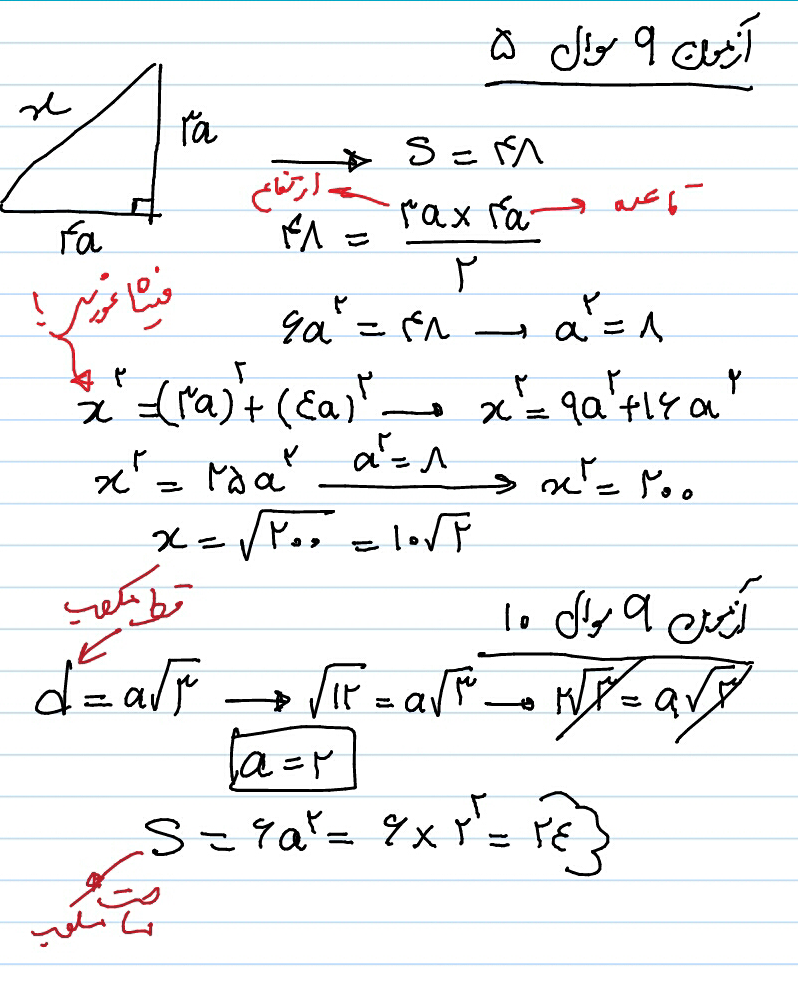 آزمون ۹ سوال ۵
x
۳a
۴a
→ S = ۴۸
ارتفاع
قاعده
۴۸ = (۳a × ۴a)/۲
فیثاغورس !
۶a² = ۴۸ → a² = ۸
x² = (۳a)² + (٤a)² → x² = ۹a² + ۱۶a²
x² = ۲۵a² a² = ۸ → x² = ۲۰۰
x = √۲۰۰ = ۱۰√۲
قطر مکعب
آزمون ۹ سوال ۱۰
d = a√۳ → √۱۲ = a√۳ → ۲√۳ = a√۳
a = ۲
S = ۶a² = ۶ × ۲² = ۲٤
مساحت مکعب